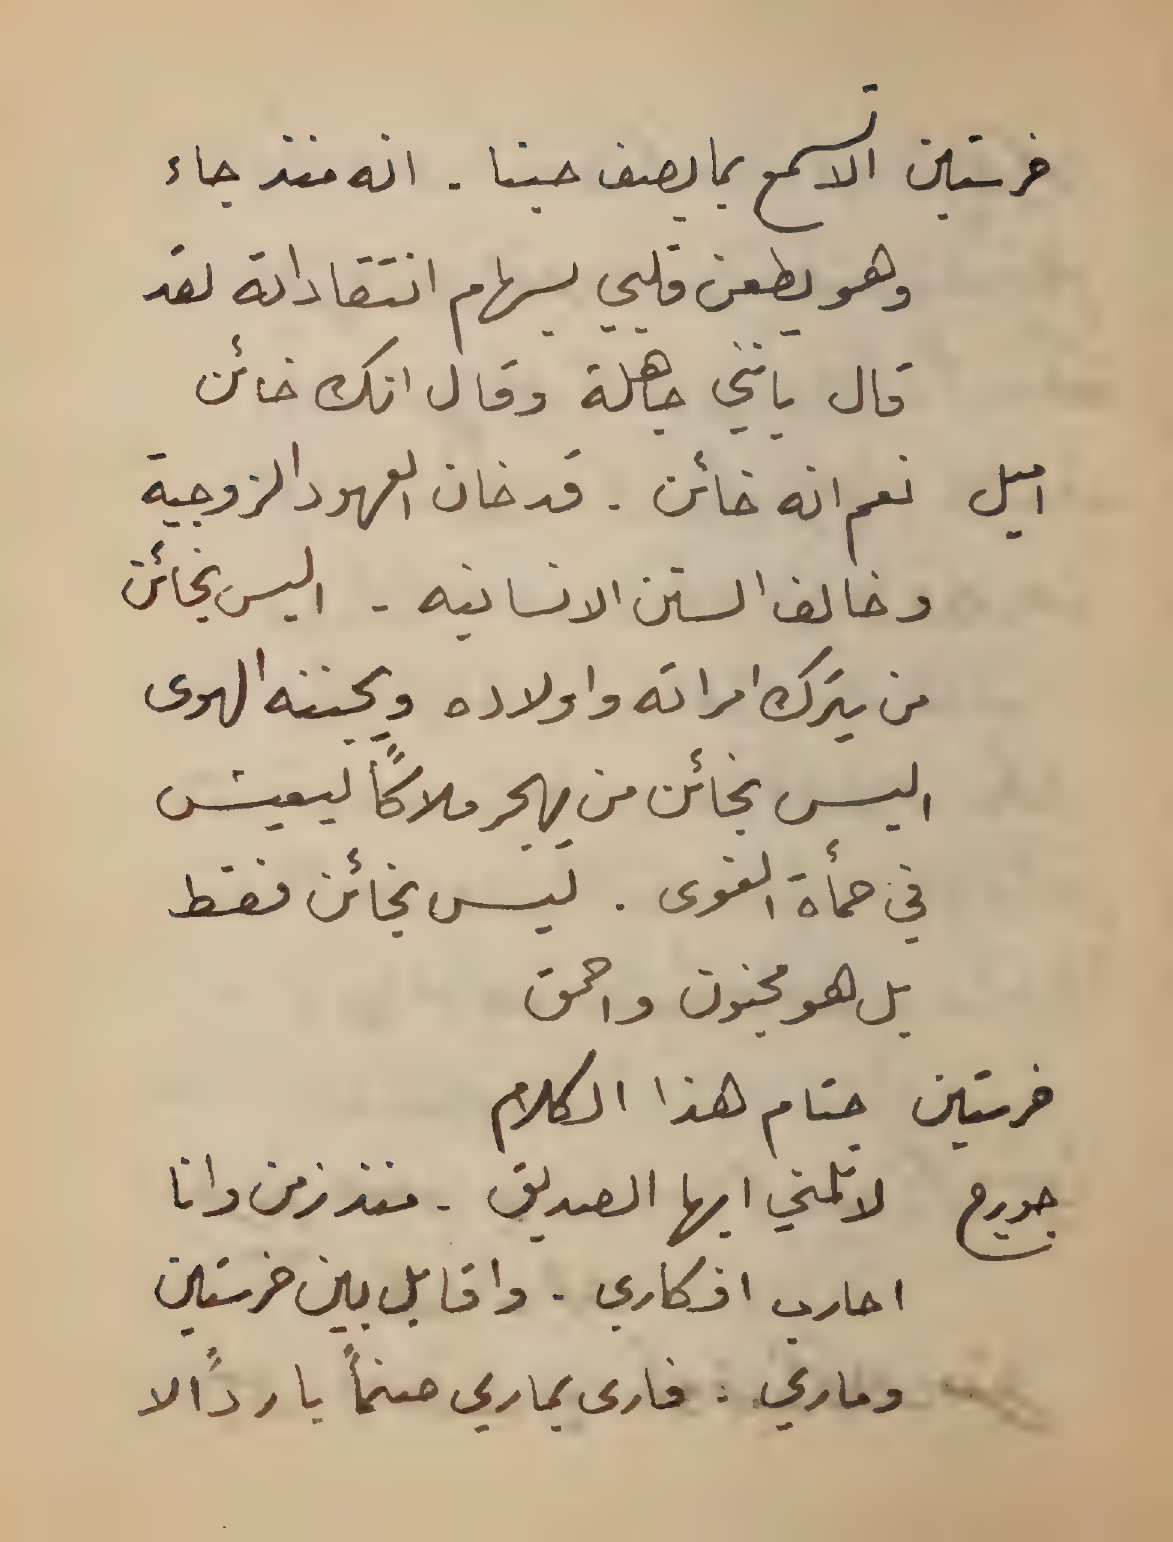 فرستين الا تسمع بما يصف حبنا . انه منذ جاء
وهو يطعن قلبي بسهام انتقاداته لقد
قال بانني جاهلة وقال انك خائن
اميل نعم انه خائن . قد خان العهود الزوجية
وخالف السنن الانسانيه . اليس بخائن
من يترك امراته واولاده ويجننه الهوى
اليس بخائن من يهجر ملاكًا ليعيش
في حمأة الغوى . ليس بخائن فقط
بل هو مجنون واحمق
فرستين ختام هذا الكلام
جورج لا تلمني ايها الصديق . منذ زمن وانا
احارب افكاري . واقابل بين فرستين
وماري : فارى بماري صنمأً باردًا لا